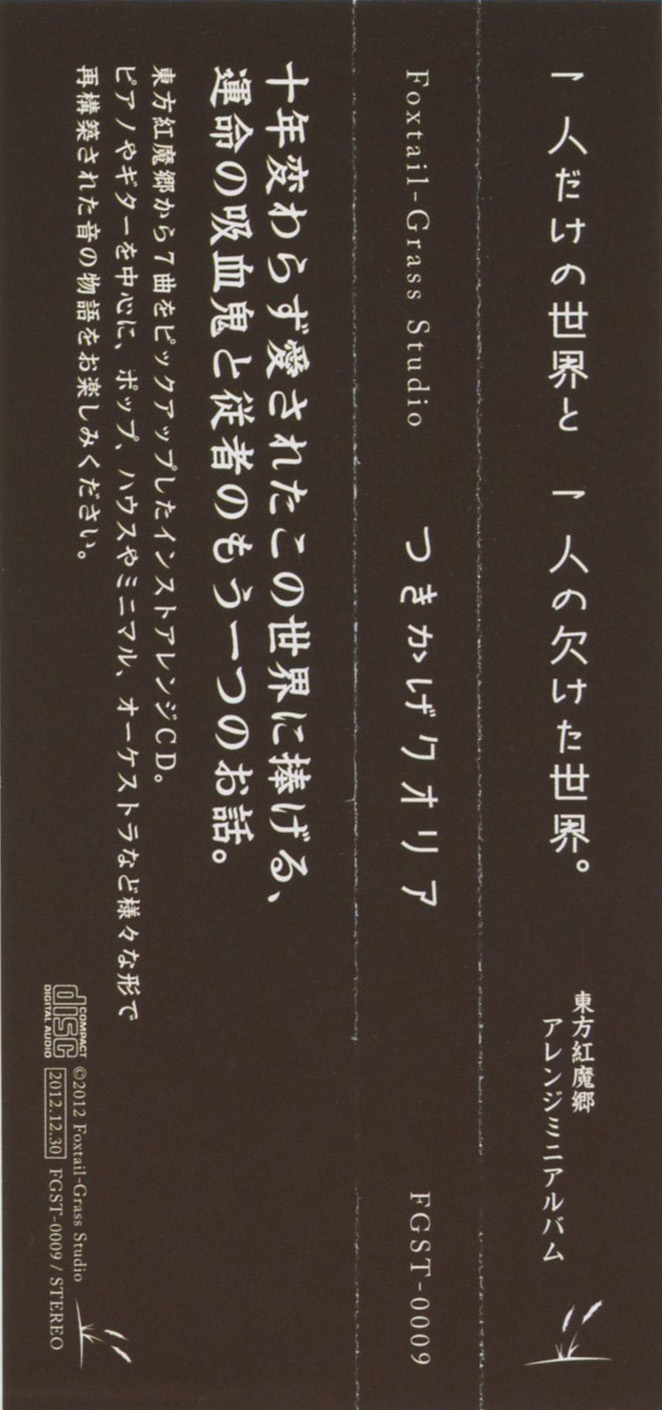 一人だけの世界と 一人の欠けた世界。
東方紅魔郷
アレンジミニアルバム
Foxtail-Grass Studio つきかげクオリア FGST-0009
十年変わらず愛されたこの世界に捧げる、
運命の吸血鬼と従者のもう一つのお話。
東方紅魔郷から7曲をピックアップしたインストアレンジCD。
ピアノやギターを中心に、ポップ、ハウスやミニマル、オーケストラなど様々な形で
再構築された音の物語をお楽しみください。
COMPACT
disc
DIGITAL AUDIO
©2012 Foxtail-Grass Studio
2012.12.30 FGST-0009 / STEREO